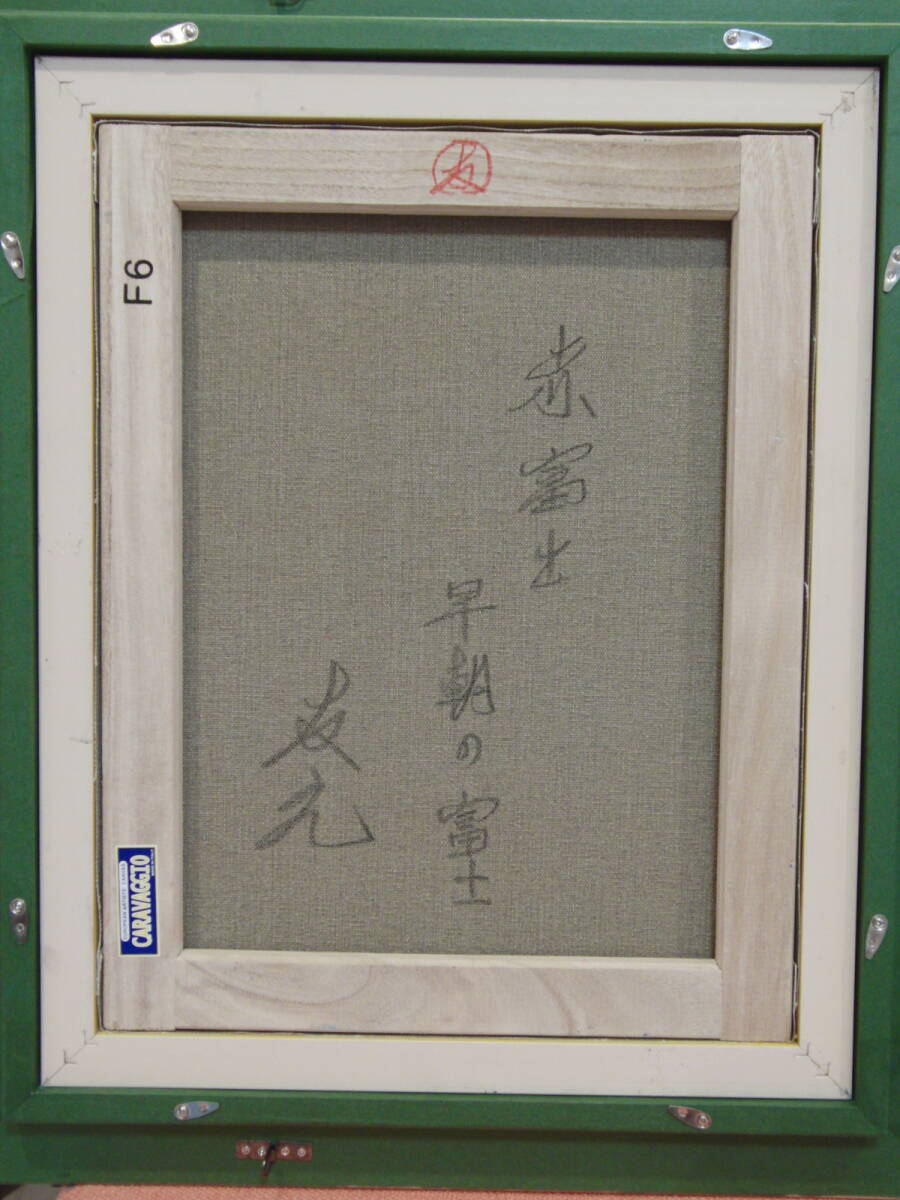 友
F6
赤富士
早朝の富士
友元
CARAVAGGIO